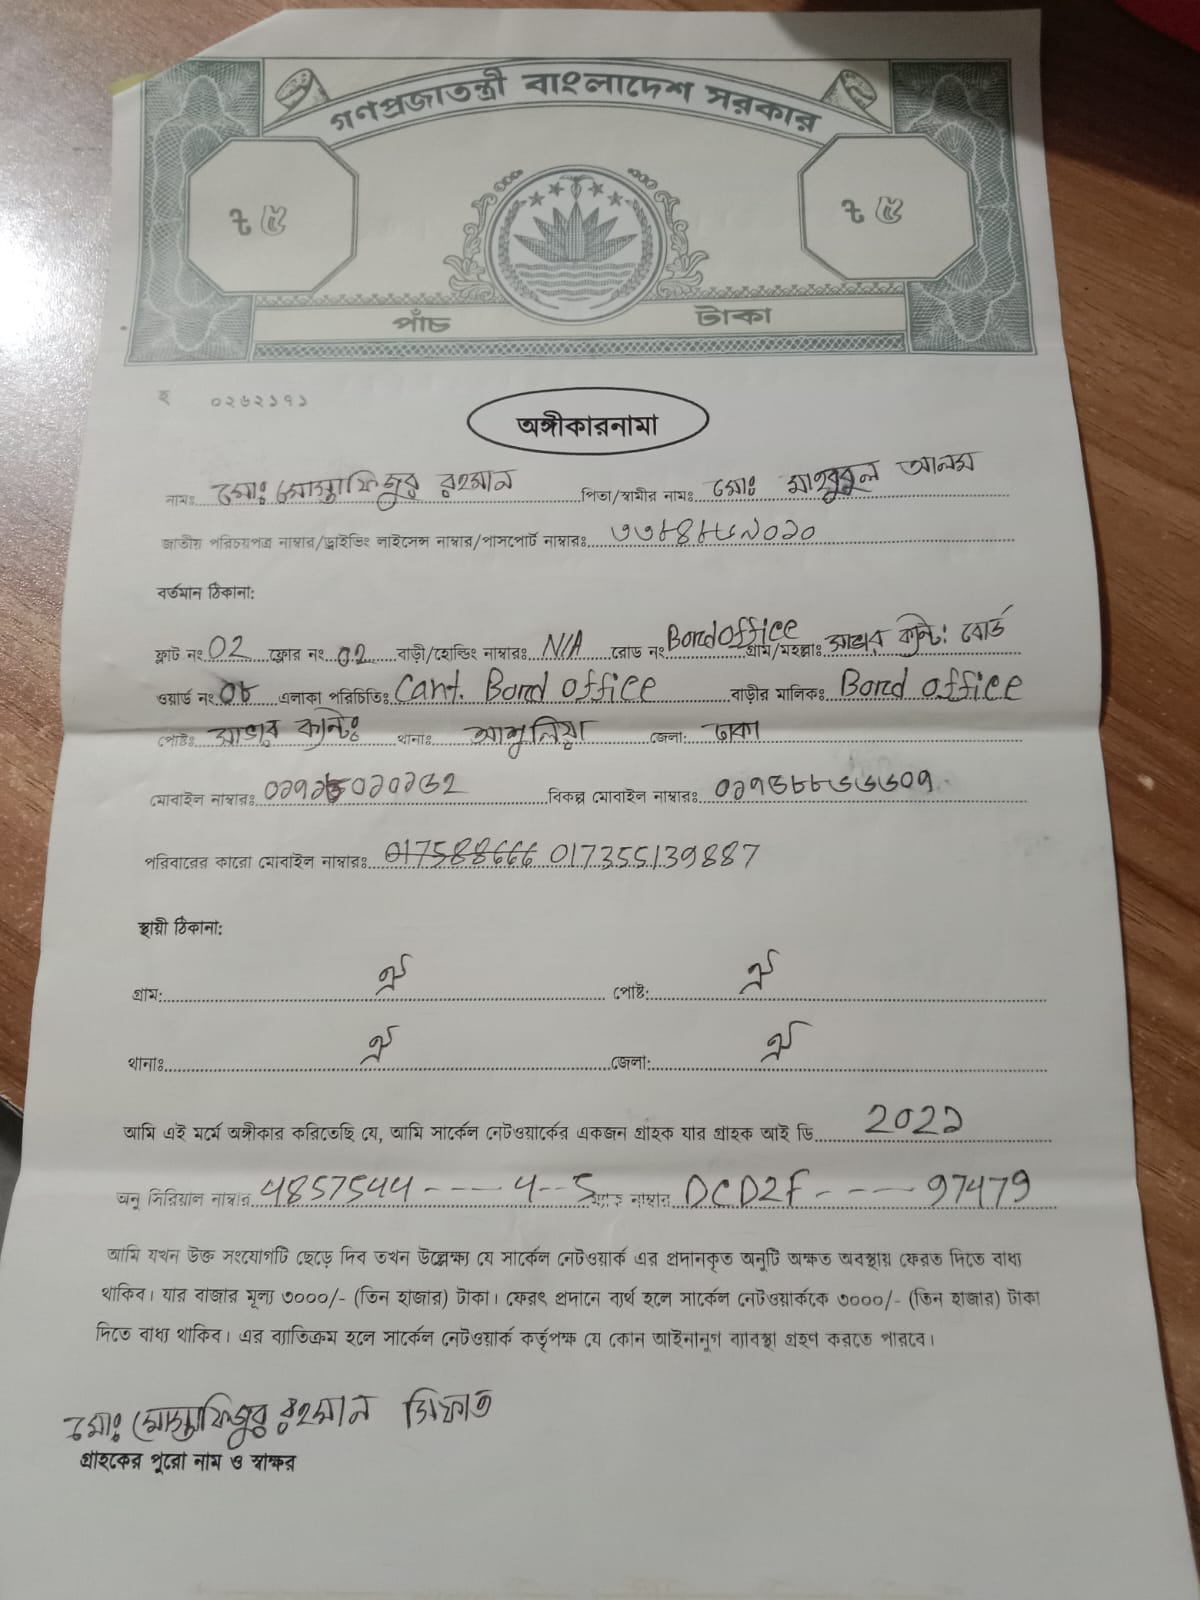 গণপ্রজাতন্ত্রী বাংলাদেশ সরকার
৳ ৫ ৳ ৫
পাঁচ টাকা
হ ০২৬২১৭১
অঙ্গীকারনামা
নামঃ মোঃ মোস্তাফিজুর রহমান পিতা/স্বামীর নামঃ মোঃ মাহবুবুল আলম
জাতীয় পরিচয়পত্র নাম্বার/ড্রাইভিং লাইসেন্স নাম্বার/পাসপোর্ট নাম্বারঃ
বর্তমান ঠিকানা:
ফ্লাট নং 02 ফ্লোর নং 02 বাড়ী/হোল্ডিং নাম্বারঃ N/A রোড নং Bord office গ্রাম/মহল্লাঃ সাভার ক্যান্ট: বোর্ড
ওয়ার্ড নং 08 এলাকা পরিচিতিঃ Cant. Bord office বাড়ীর মালিক: Bord office
পোষ্টঃ সাভার ক্যান্টঃ থানাঃ আশুলিয়া জেলা: ঢাকা
মোবাইল নাম্বারঃ বিকল্প মোবাইল নাম্বারঃ
পরিবারের কারো মোবাইল নাম্বারঃ 017588666 017355139887
স্থায়ী ঠিকানা:
গ্রাম: ঐ পোষ্ট: ঐ
থানাঃ ঐ জেলা: ঐ
আমি এই মর্মে অঙ্গীকার করিতেছি যে, আমি সার্কেল নেটওয়ার্কের একজন গ্রাহক যার গ্রাহক আই ডি 2021
অনু সিরিয়াল নাম্বার 4857544 ---- 4--5 ম্যাক নাম্বার DCD2F ---- 97479
আমি যখন উক্ত সংযোগটি ছেড়ে দিব তখন উল্লেক্ষ্য যে সার্কেল নেটওয়ার্ক এর প্রদানকৃত অনুটি অক্ষত অবস্থায় ফেরত দিতে বাধ্য
থাকিব। যার বাজার মূল্য ৩০০০/- (তিন হাজার) টাকা। ফেরৎ প্রদানে ব্যর্থ হলে সার্কেল নেটওয়ার্ককে ৩০০০/- (তিন হাজার) টাকা
দিতে বাধ্য থাকিব। এর ব্যাতিক্রম হলে সার্কেল নেটওয়ার্ক কর্তৃপক্ষ যে কোন আইনানুগ ব্যাবস্থা গ্রহণ করতে পারবে।
মোঃ মোস্তাফিজুর রহমান সিফাত
গ্রাহকের পুরো নাম ও স্বাক্ষর